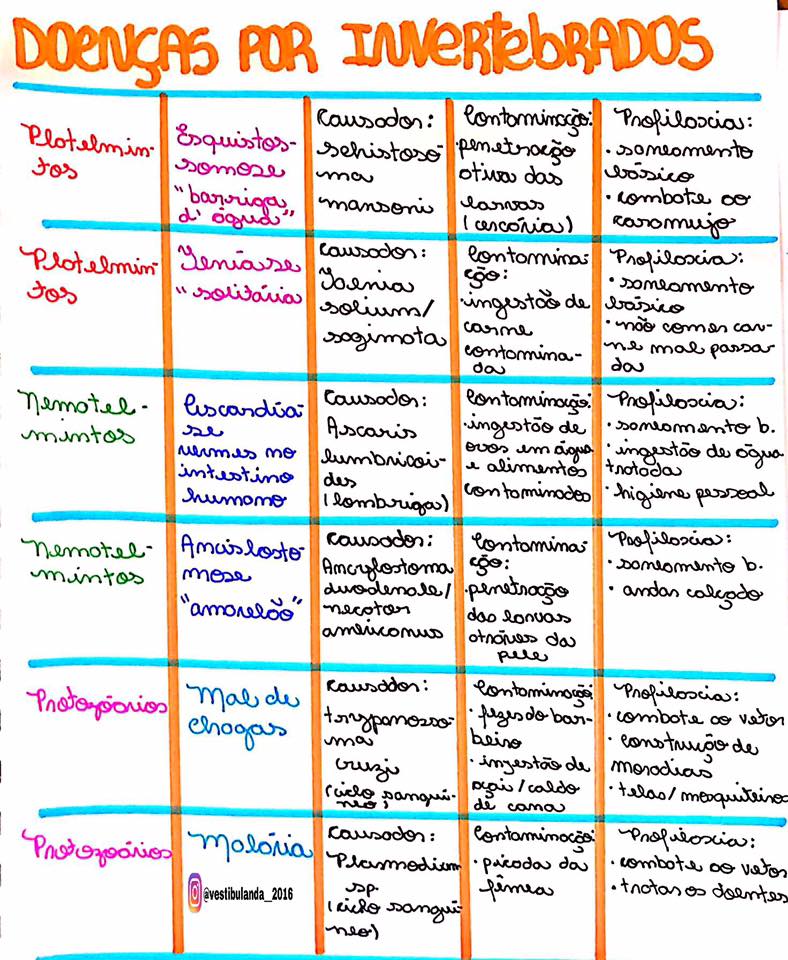 DOENÇAS POR INVERTEBRADOS
Platelmin-
tos
Esquistos-
somose
"barriga
d'água"
Causador:
schistoso-
ma
mansoni
Contaminação:
·penetração
ativa das
larvas
(cercária)
Profilaxia:
· saneamento
básico
· combate ao
caramujo
Platelmin-
tos
Teníase
"solitária
Causador:
Taenia
solium/
saginata
Contamina
ção:
·ingestão de
carne
contamina-
da
Profilaxia:
· saneamento
básico
· não comer car-
ne mal passa-
da
Nematel-
mintos
Ascaridía
se
vermes no
intestino
humano
Causador:
Ascaris
lumbricoi-
des
(lombriga)
Contaminação:
·ingestão de
ovos em água
e alimentos
contaminados
Profilaxia:
· saneamento b.
· ingestão de água
tratada
· higiene pessoal
Nematel-
mintos
Ancilosto
mose
"amarelão"
Causador:
Ancylostoma
duodenale/
necator
americanus
Contamina
ção:
·penetração
das larvas
através da
pele
Profilaxia:
· saneamento b.
· andar calçado
Protozoários
Mal de
chagas
Causador:
trypanosso-
ma
cruzi
(ciclo sanguí-
neo)
Contaminação:
· fezes do bar-
beiro
· ingestão de
açaí/caldo
de cana
Profilaxia:
· combate ao vetor
· construção de
moradias
· telas/mosquiteiros
Protozoários
Malária
@vestibulanda_2016
Causador:
Plasmodium
sp
(ciclo sanguí-
neo)
Contaminação:
· picada da
fêmea
Profilaxia:
· combate ao vetor
· tratar os doentes